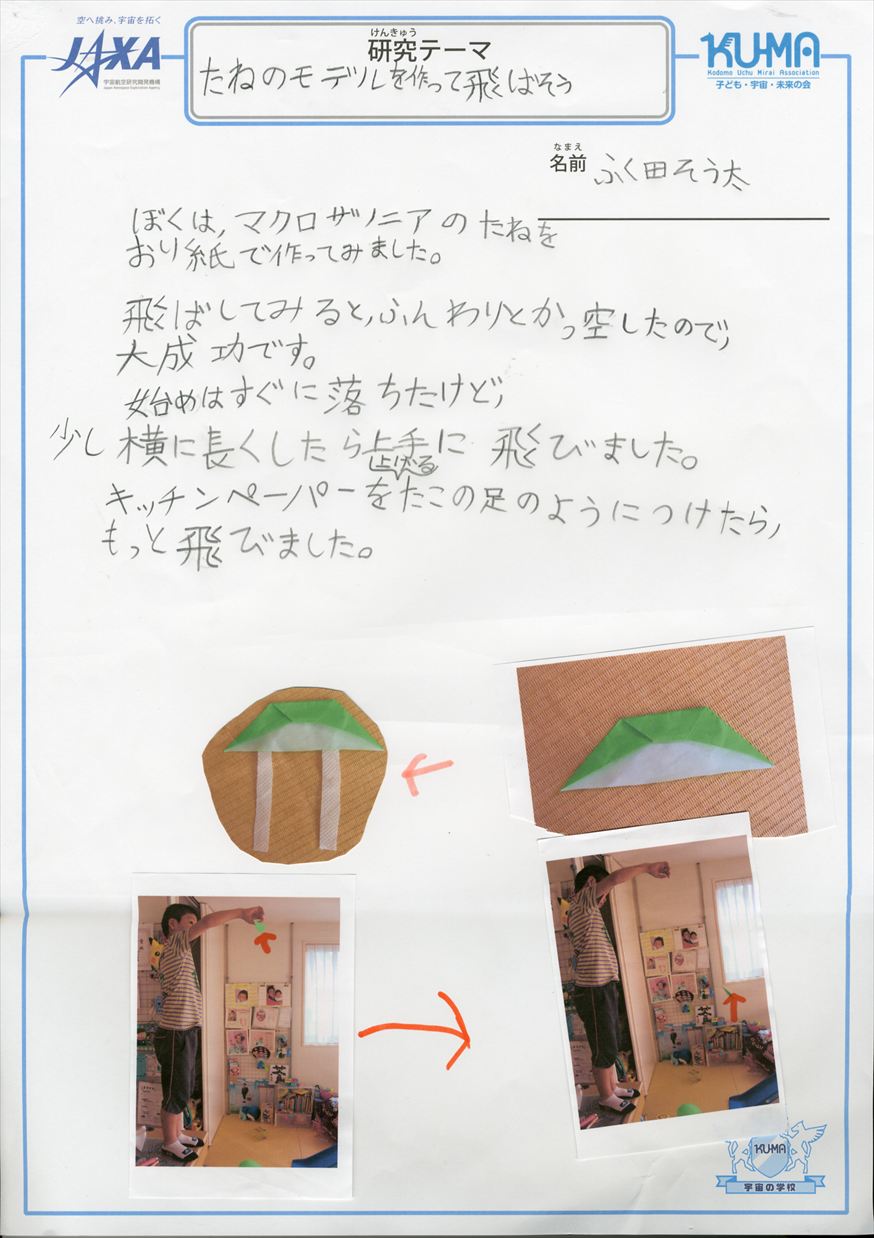 空へ挑み、宇宙を拓く
JAXA
宇宙航空研究開発機構
Japan Aerospace Exploration Agency
けんきゅう
研究テーマ
たねのモデルを作って飛ばそう
KU-MA
Kodomo Uchu Mirai Association
子ども・宇宙・未来の会
なまえ
名前 ふく田そう太
ぼくは,マクロザノニアのたねを
おり紙で作ってみました。
飛ばしてみると,ふんわりとかっ空したので,
大成功です。
始めはすぐに落ちたけど,
少し横に長くしたら上手に飛びました。
キッチンペーパーをたこの足のようにつけたら,
もっと飛びました。
KU-MA
宇宙の学校